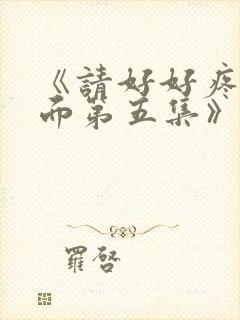 《請好好疼
而第五集》
羅啓